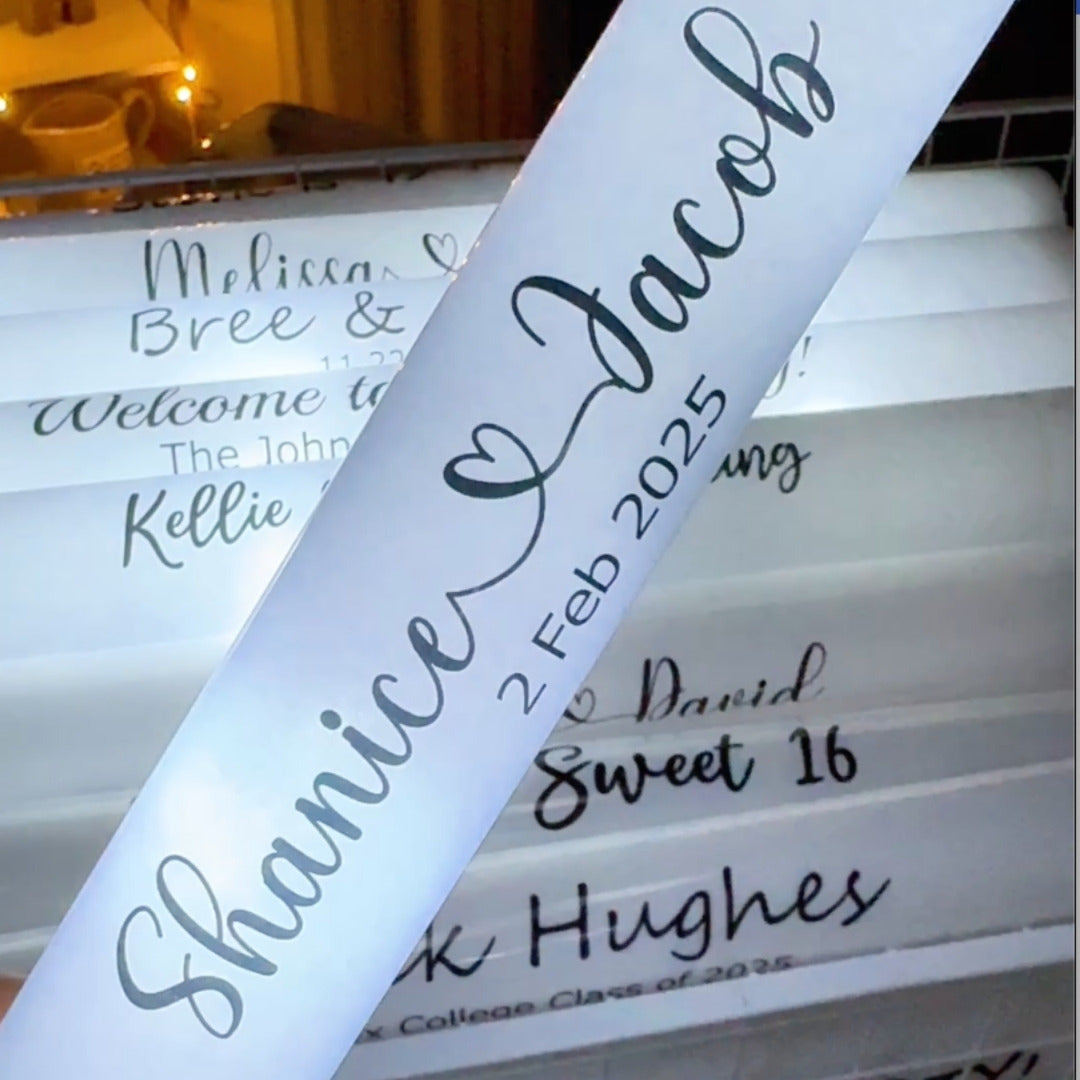 Shanice ♡ Jacob
2 Feb 2025
Melissa ♡
Bree &
11.22
Welcome to
The John
Kellie
♡ David
Sweet 16
Hughes
College Class of 2025